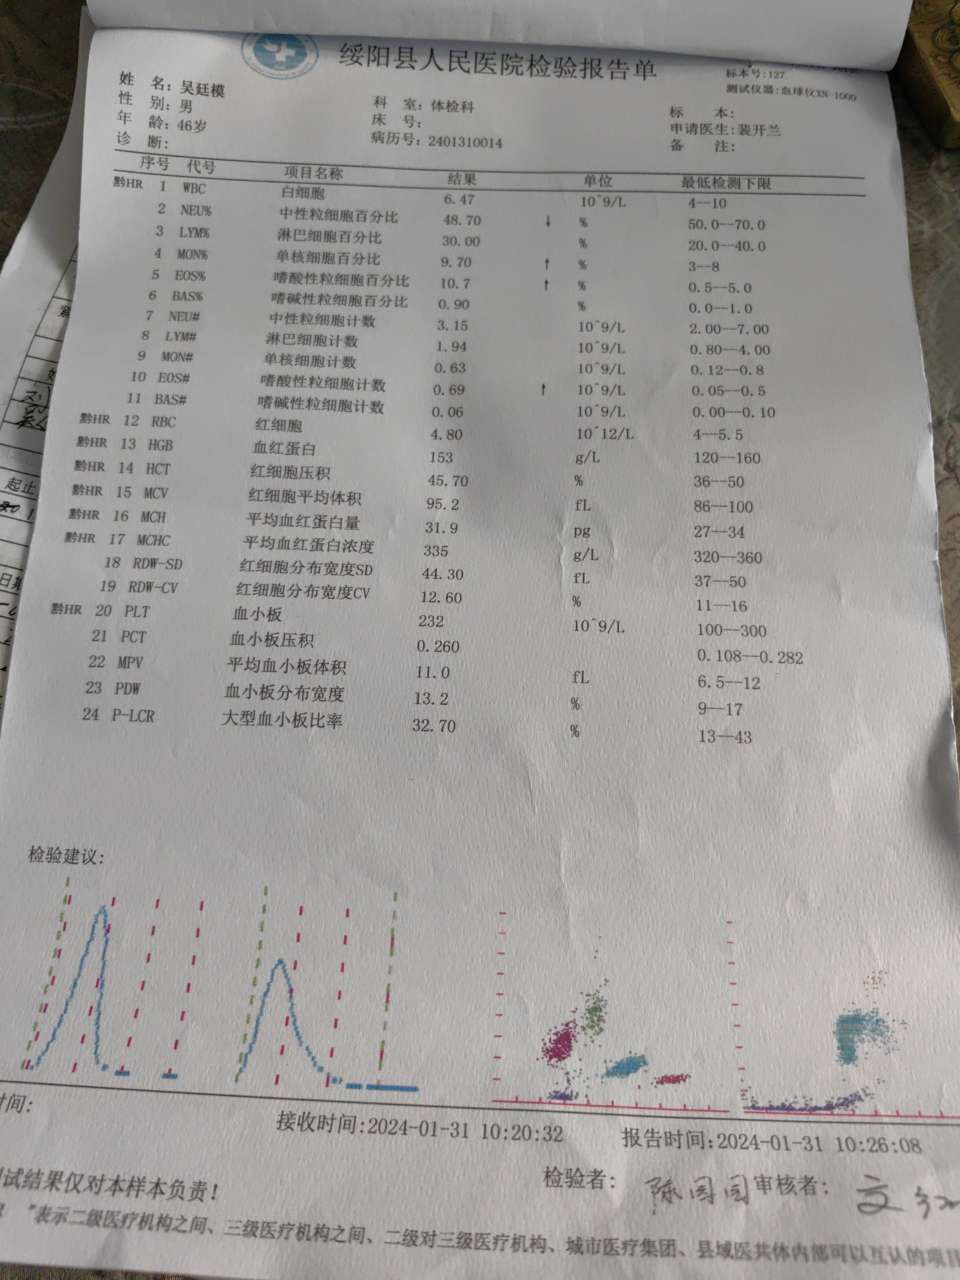 绥阳县人民医院检验报告单
标本号:127
测试仪器:血球仪XN-1000
姓 名: 吴廷模
性 别: 男
年 龄: 46岁
诊 断:
科 室: 体检科
床 号:
病历号: 2401310014
标 本:
申请医生: 裴开兰
备 注:
序号 代号 项目名称 结果 单位 最低检测下限
黔HR 1 WBC 白细胞 6.47 10^9/L 4--10
2 NEU% 中性粒细胞百分比 48.70 ↓ % 50.0--70.0
3 LYM% 淋巴细胞百分比 30.00 % 20.0--40.0
4 MON% 单核细胞百分比 9.70 ↑ % 3--8
5 EOS% 嗜酸性粒细胞百分比 10.7 ↑ % 0.5--5.0
6 BAS% 嗜碱性粒细胞百分比 0.90 % 0.0--1.0
7 NEU# 中性粒细胞计数 3.15 10^9/L 2.00--7.00
8 LYM# 淋巴细胞计数 1.94 10^9/L 0.80--4.00
9 MON# 单核细胞计数 0.63 10^9/L 0.12--0.8
10 EOS# 嗜酸性粒细胞计数 0.69 ↑ 10^9/L 0.05--0.5
11 BAS# 嗜碱性粒细胞计数 0.06 10^9/L 0.00--0.10
黔HR 12 RBC 红细胞 4.80 10^12/L 4--5.5
黔HR 13 HGB 血红蛋白 153 g/L 120--160
黔HR 14 HCT 红细胞压积 45.70 % 36--50
黔HR 15 MCV 红细胞平均体积 95.2 fL 86--100
黔HR 16 MCH 平均血红蛋白量 31.9 pg 27--34
黔HR 17 MCHC 平均血红蛋白浓度 335 g/L 320--360
18 RDW-SD 红细胞分布宽度SD 44.30 fL 37--50
19 RDW-CV 红细胞分布宽度CV 12.60 % 11--16
黔HR 20 PLT 血小板 232 10^9/L 100--300
21 PCT 血小板压积 0.260 0.108--0.282
22 MPV 平均血小板体积 11.0 fL 6.5--12
23 PDW 血小板分布宽度 13.2 % 9--17
24 P-LCR 大型血小板比率 32.70 % 13--43
检验建议:
时间:
接收时间:2024-01-31 10:20:32
报告时间:2024-01-31 10:26:08
试结果仅对本样本负责!
检验者:
审核者:
"表示二级医疗机构之间、三级医疗机构之间、二级对三级医疗机构、城市医疗集团、县域医共体内部可以互认的项目
起止
日期